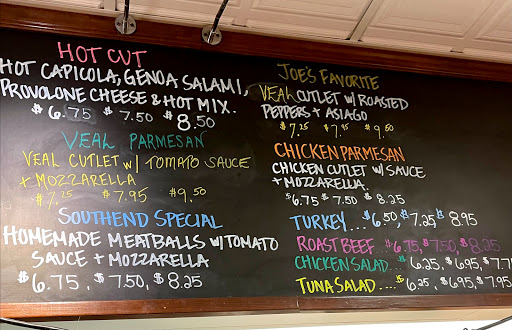 HOT CUT
HOT CAPICOLA, GENOA SALAMI,
PROVOLONE CHEESE & HOT MIX.
$6.75 $7.50 $8.50
VEAL PARMESAN
VEAL CUTLET w/ TOMATO SAUCE
+ MOZZARELLA
$7.25 $7.95 $9.50
SOUTHEND SPECIAL
HOMEMADE MEATBALLS w/TOMATO
SAUCE + MOZZARELLA
$6.75, $7.50, $8.25
JOE'S FAVORITE
VEAL CUTLET w/ ROASTED
PEPPERS + ASIAGO
$7.25 $7.95 $9.50
CHICKEN PARMESAN
CHICKEN CUTLET w/ SAUCE
+ MOZZARELLA.
$6.75 $7.50 $8.25
TURKEY... $6.50, $7.25, $8.95
ROAST BEEF $6.75, $7.50, $8.25
CHICKEN SALAD... $6.25, $6.95, $7.7
TUNA SALAD.... $6.25, $6.95, $7.95